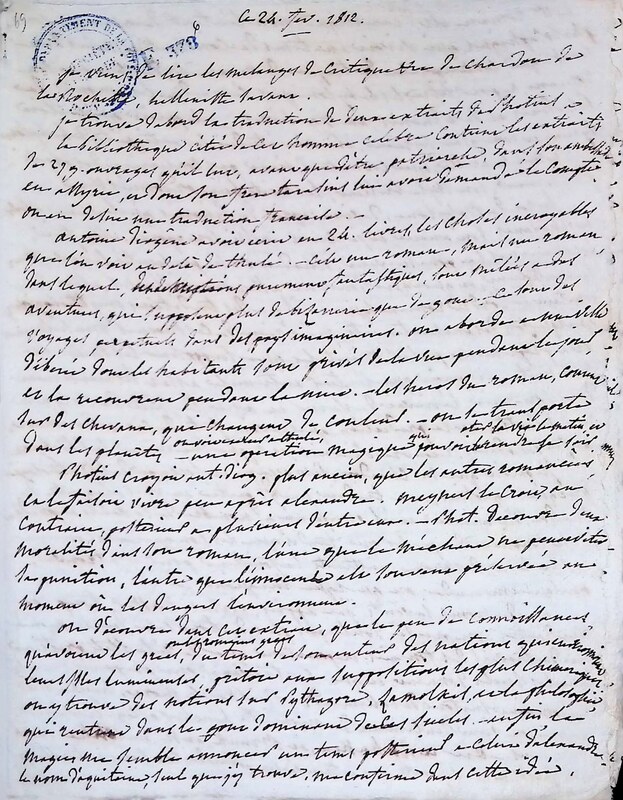 69
6
ce 24. fev. 1812.
DEPARTEMENT DE LA
378
je viens de lire les melanges de critique &c de chardon de
la Rochette, helleniste savant.
je trouve d'abord la traduction de deux extraits de Photius
la bibliotheque citée de cet homme celebre contient les extraits
de 279. ouvrages qu'il lut, avant que d'être patriarche, dans son ambassade
en assyrie, et dont son frere tarasius lui avoit demandé le compte
on en desire une traduction francaise. -
antoine diogène avoit écrit en 24. livres les choses incroyables
que l'on voit au delà de thulé. - c'est un roman, mais un roman
dans lequel, purement fantastiques, sont mêlées a des
aventures, qui supposent plus de bizarrerie que de gout - ce sont des
voyages perpetuels dans des pays imaginaires. on aborde a une ville
d'iberie dont les habitants sont privés de la vue pendant le jour
et la recouvrent pendant la nuit. - les heros du roman, courent
sur des chevaux, qui changent de couleur - on se transporte
dans les planetes - une operation magique
Photius croyoit ant. diog. plus ancien, que les autres romanciers
et le faisoit vivre peu après alexandre. le croit, au
contraire, posterieur a plusieurs d'entre eux. - Phot. decouvre deux
moralités dans son roman, l'une que le mechant ne peut éviter
la punition, l'autre que l'innocent est souvent préservé au
moment où les dangers l'environnent.
on decouvre dans cet extrait, que le peu de connoissances
qu'avoient les grecs, du tems des nations
leurs lumineuses, pretoit aux suppositions les plus chimeriques
on y trouve des notions sur Pythagore, Zamolxis, et la philosophie
qui rentrent dans le gout dominant de ces siecles. - enfin la
magie me semble annoncer un tems posterieur a celui d'alexandre
le nom d'aquitaine, seul que j'y trouve, me confirme dans cette idée.